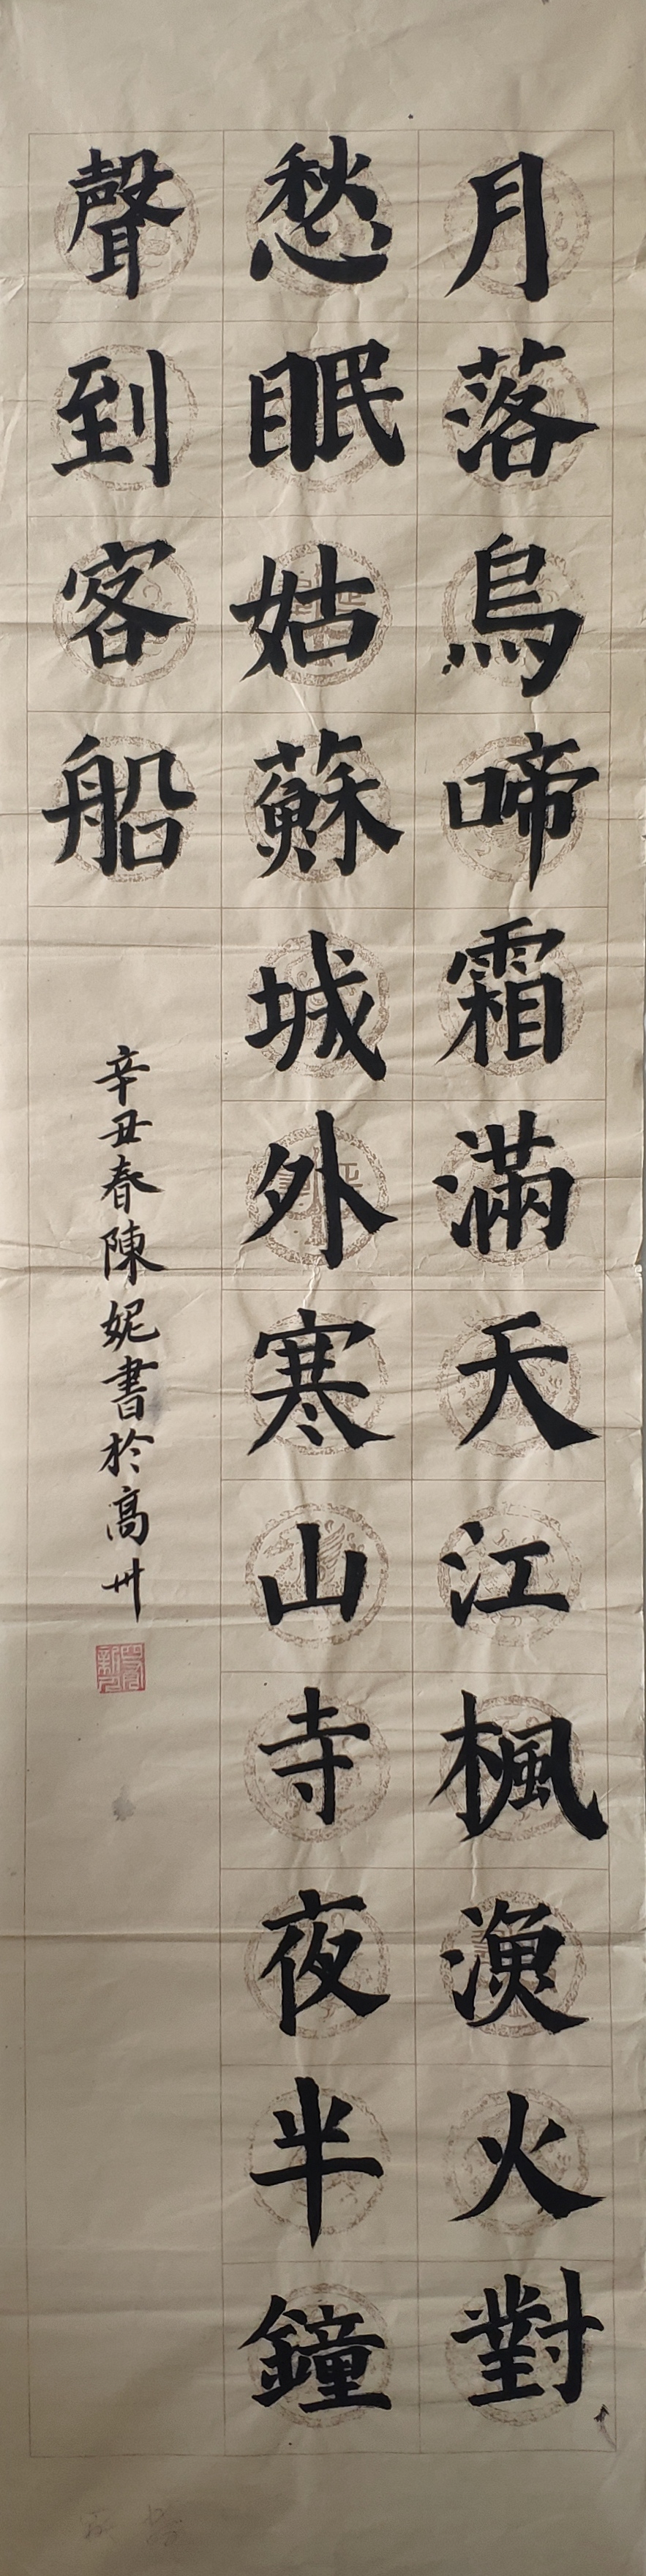 月落烏啼霜滿天江楓漁火對
愁眠姑蘇城外寒山寺夜半鐘
聲到客船
辛丑春陳妮書於高州